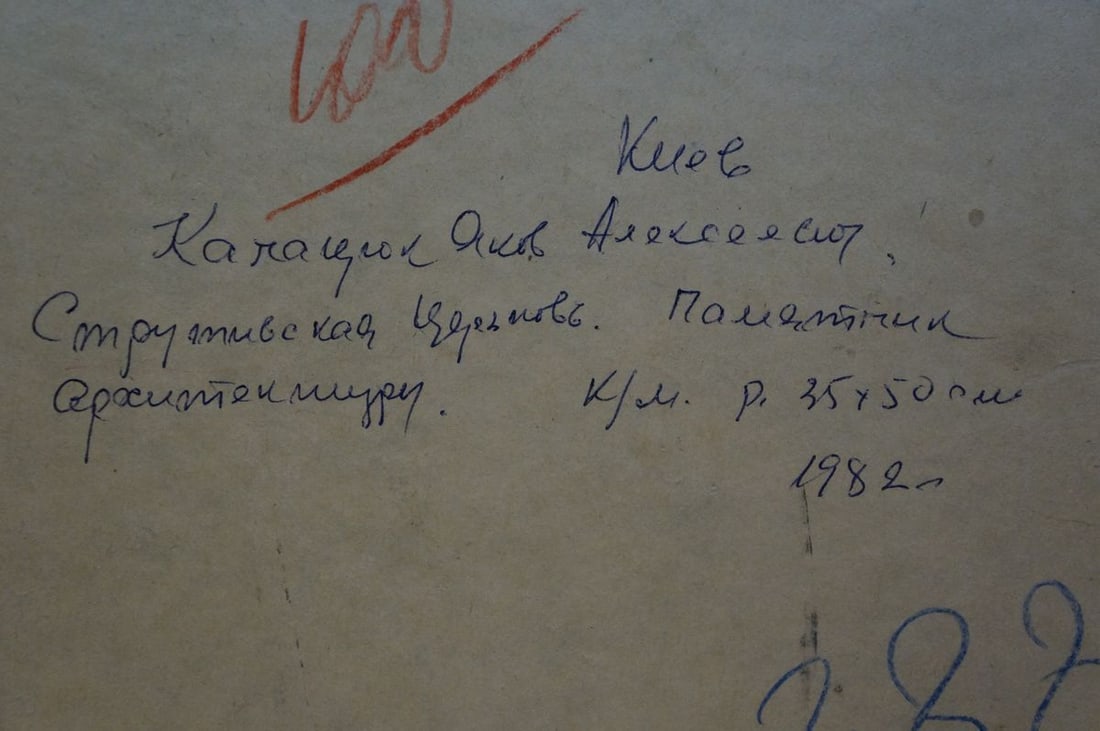 100
Киев
Калащук Яков Алексеевич,
Струтивская Церьковь. Памятник
архитектуру. К/м. р. 35х50 см
1982г